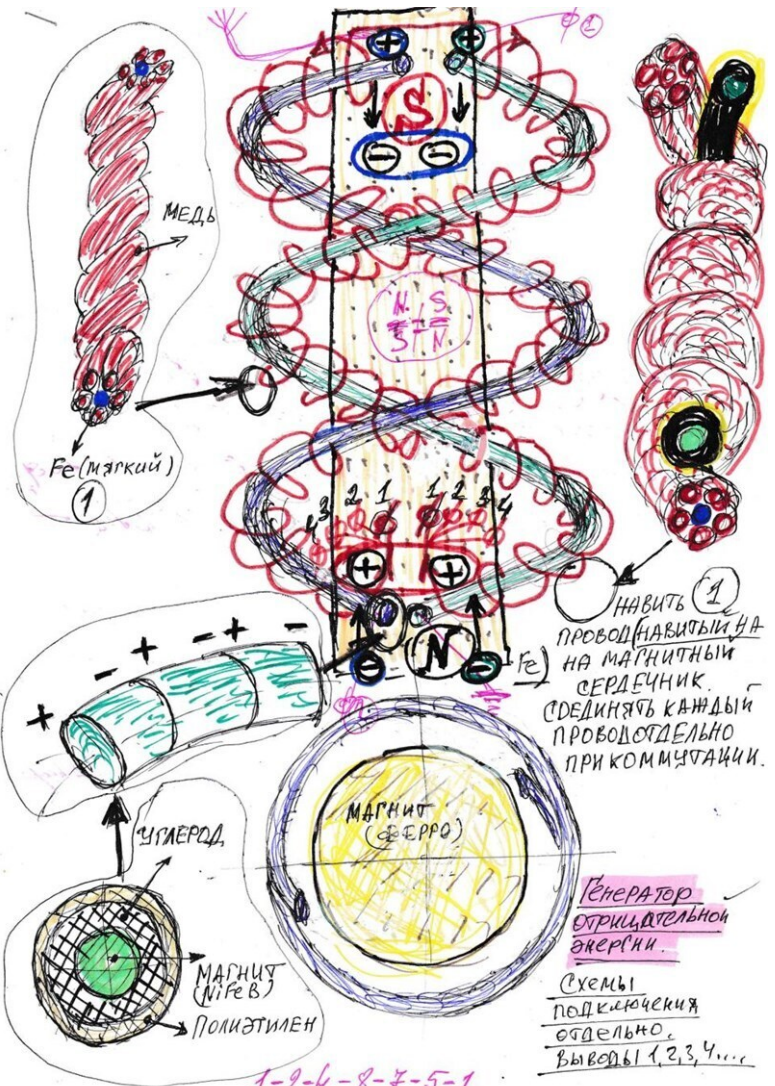 + +
S
− −
МЕДЬ
N S
S N
Fe (мягкий)
1
4 3 2 1 1 2 3 4
+ +
− N − Fe)
НАВИТЬ 1
ПРОВОД (НАВИТЫЙ НА
НА МАГНИТНЫЙ
СЕРДЕЧНИК.
СОЕДИНЯТЬ КАЖДЫЙ
ПРОВОД ОТДЕЛЬНО
ПРИ КОММУТАЦИИ.
+ − + − + −
МАГНИТ
(ФЕРРО)
УГЛЕРОД
МАГНИТ
(NiFeB)
ПОЛИЭТИЛЕН
Генератор
отрицательной
энергии.
Схемы
подключения
отдельно.
Выводы 1,2,3,4....
1-2-4-8-7-5-1